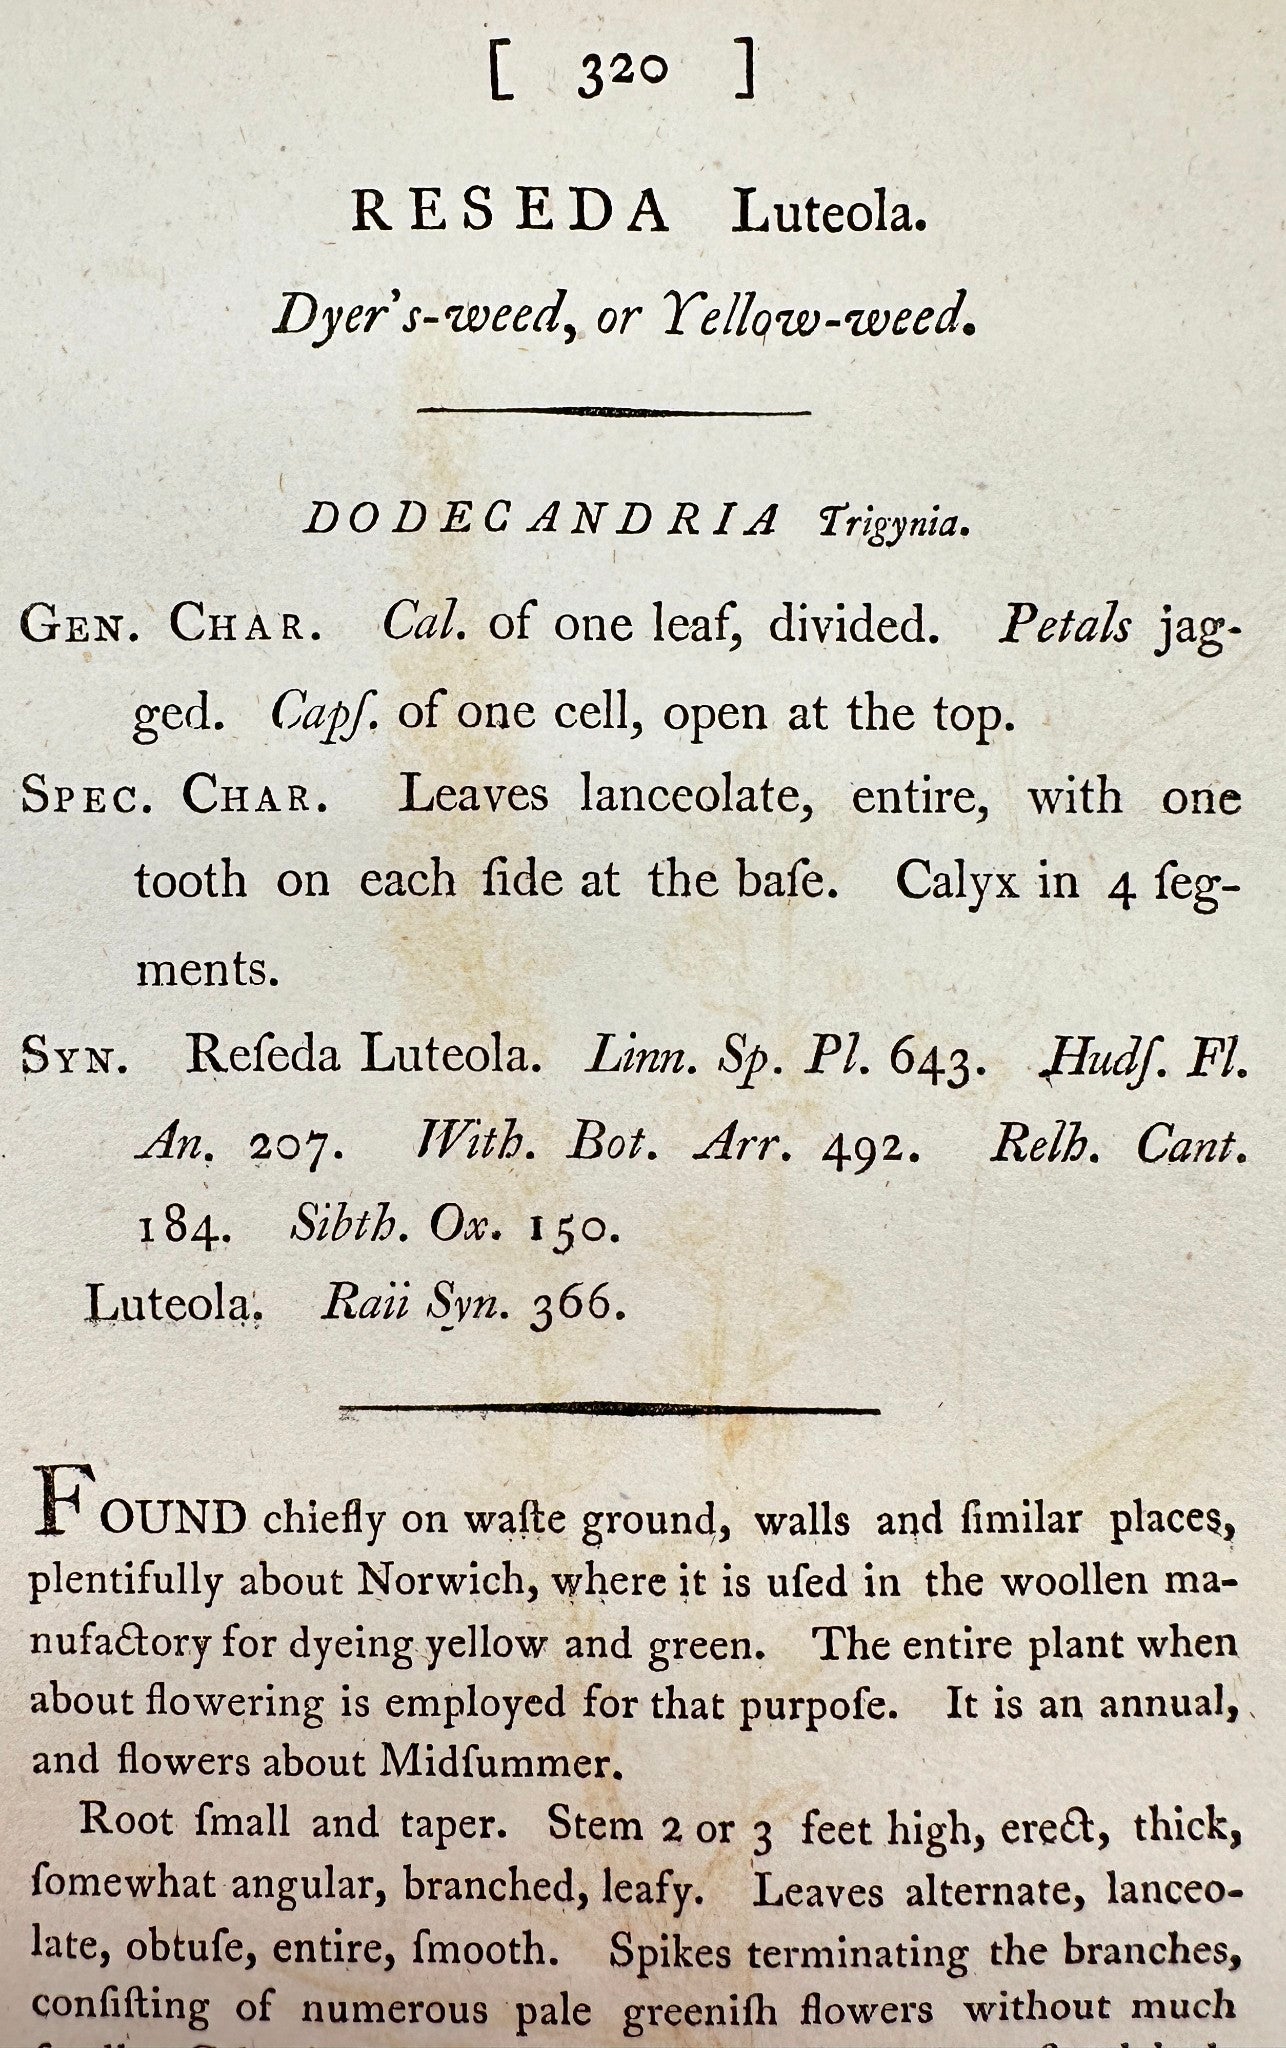 [ 320 ]
RESEDA Luteola.
Dyer's-weed, or Yellow-weed.
DODECANDRIA Trigynia.
GEN. CHAR. Cal. of one leaf, divided. Petals jag-
ged. Capſ. of one cell, open at the top.
SPEC. CHAR. Leaves lanceolate, entire, with one
tooth on each ſide at the baſe. Calyx in 4 ſeg-
ments.
SYN. Reſeda Luteola. Linn. Sp. Pl. 643. Hudſ. Fl.
An. 207. With. Bot. Arr. 492. Relh. Cant.
184. Sibth. Ox. 150.
Luteola. Raii Syn. 366.
FOUND chiefly on waſte ground, walls and ſimilar places,
plentifully about Norwich, where it is uſed in the woollen ma-
nufactory for dyeing yellow and green. The entire plant when
about flowering is employed for that purpoſe. It is an annual,
and flowers about Midſummer.
Root ſmall and taper. Stem 2 or 3 feet high, erect, thick,
ſomewhat angular, branched, leafy. Leaves alternate, lanceo-
late, obtuſe, entire, ſmooth. Spikes terminating the branches,
conſiſting of numerous pale greeniſh flowers without much